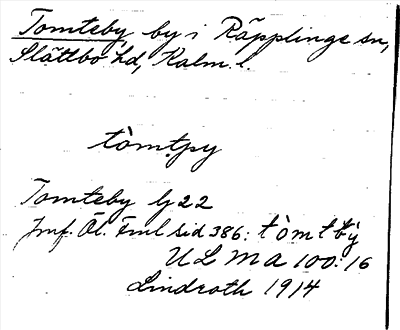 Tomteby by i Räpplinge sn,
Slättbo hd, Kalm. l.
tòmt̥py
Tomteby lj 22
Jmf. Öl. Fml sid 386: tòmtbỳ
ULMA 100:16
Lindroth 1914